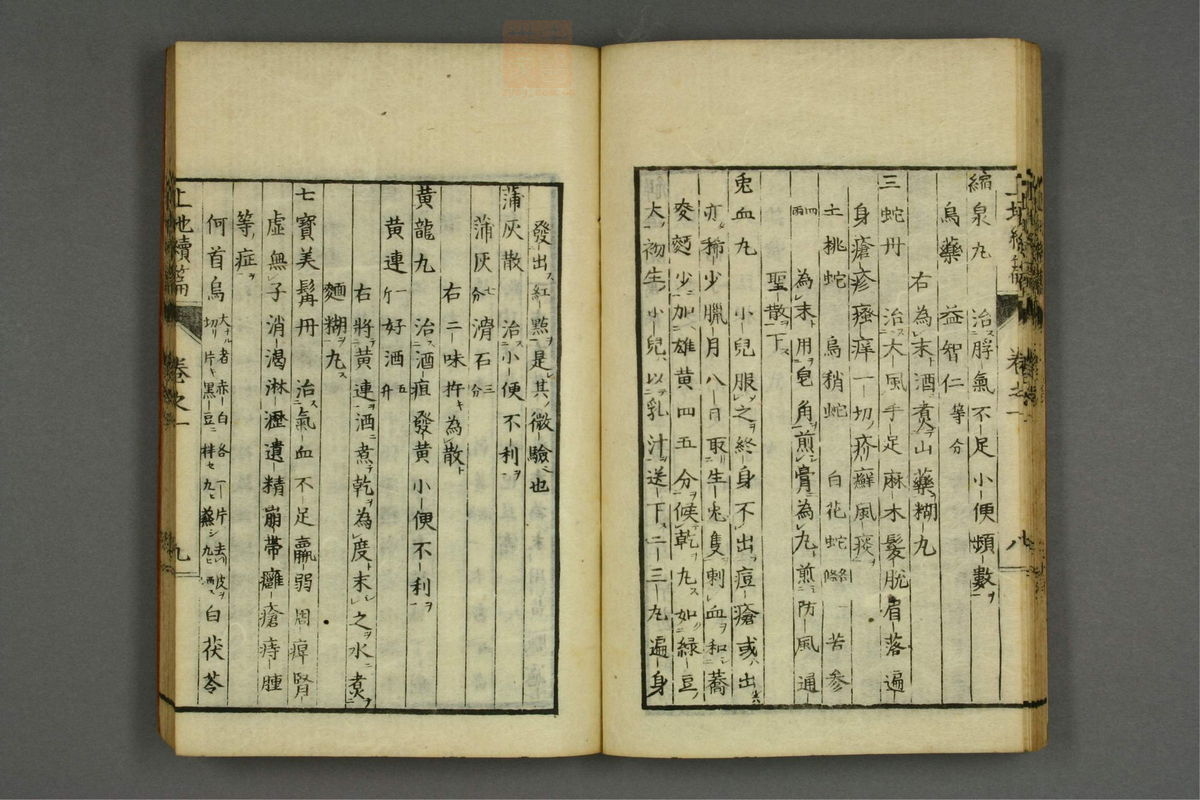 縮泉丸　治脬氣不足小便頻數
烏藥　益智仁等分
右為末酒煮山藥糊丸
三蛇丹　治大風手足麻木髮脫眉落遍
身瘡疹瘙痒一切疥癬風痰
土桃蛇　烏稍蛇　白花蛇　苦參
四兩　為末用皂角煎膏為丸煎防風通
聖散下
兎血丸　小兒服之終身不出痘瘡或出
亦稀少臘月八日取生兎隻刺血和蕎
麥麪少加雄黄四五分候乾丸如綠豆
大初生小兒以乳汁送下二三丸遍身
卷之一　八
發出紅㸃是其微驗也
蒲灰散　治小便不利
蒲灰七分　滑石三分
右二味杵為散
黄龍丸　治酒疸發黄小便不利
黄連一斤　好酒五升
右將黄連酒煮乾為度末之水煮
麵糊丸
七寶美髯丹　治氣血不足羸弱周痺腎
虛無子消渴淋瀝遺精崩帶癰瘡痔腫
等症
何首烏大者赤白各一片去皮切片黑豆拌九蒸九晒　白茯苓
上池續篇　卷之一　九